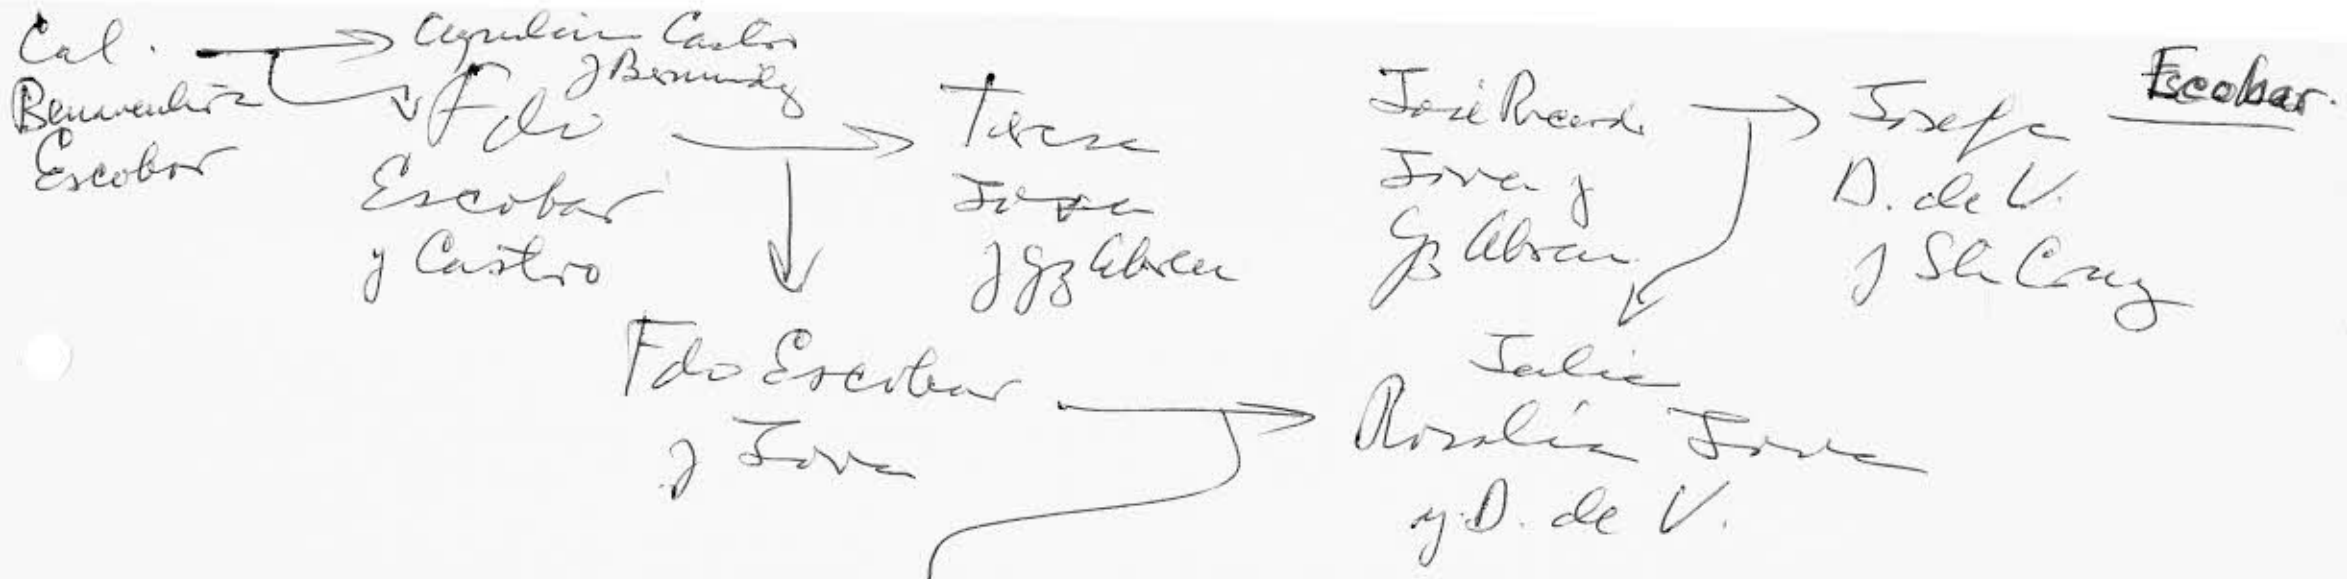 Escobar.
Cal.
Benaventura
Escobar
Castro
y Bermudez
Fdo
Escobar
y Castro
Teresa
Jova
y Gz Abreu
José Ricardo
Jova y
Gz Abreu
Josefa
D. de V.
y Sta Cruz
Fdo Escobar
y Jova
Julia
Rosalía Jova
y D. de V.